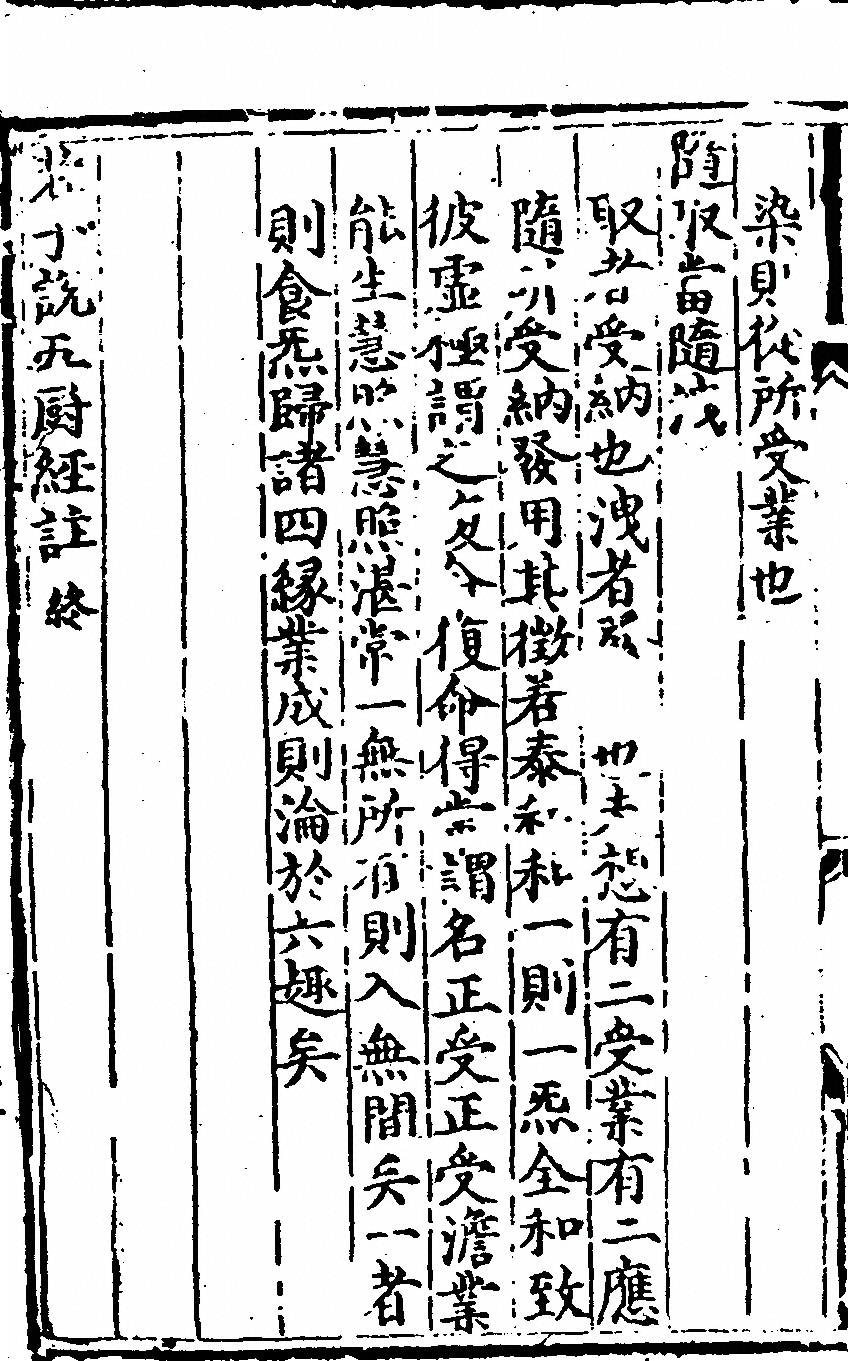 染則從所受業也
隨取當隨洩
取者受納也洩者 也夫想有二受業有二應
隨所受納發用其徵若泰和和一則一炁全和致
彼虛極謂之復命復命得常謂名正受正受澹業
能生慧照慧照湛常一無所有則入無間矣一者
則食炁歸諸四緣業成則淪於六趣矣
老子說五厨經註終